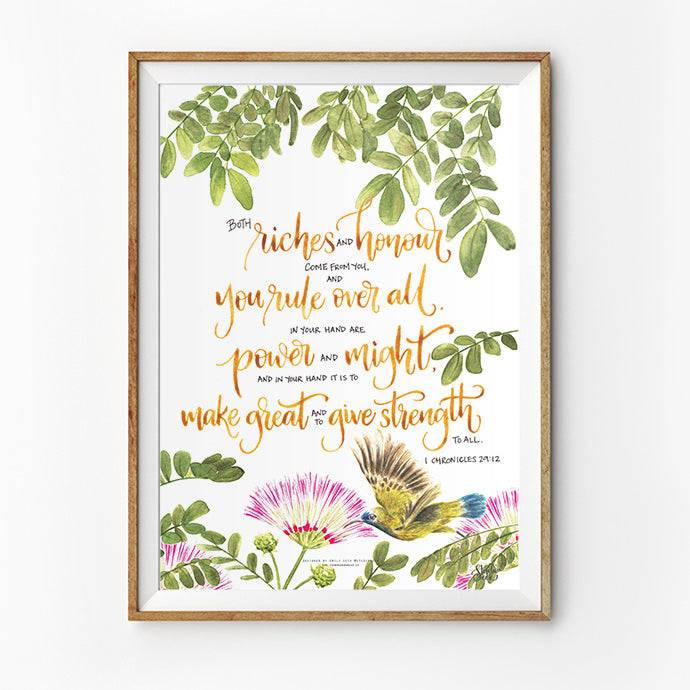 BOTH riches AND honour
COME FROM YOU,
AND
you rule over all.
IN YOUR HAND ARE
power AND might,
AND IN YOUR HAND IT IS TO
make great AND TO give strength
TO ALL.
1 CHRONICLES 29:12
DESIGNED BY EMILY